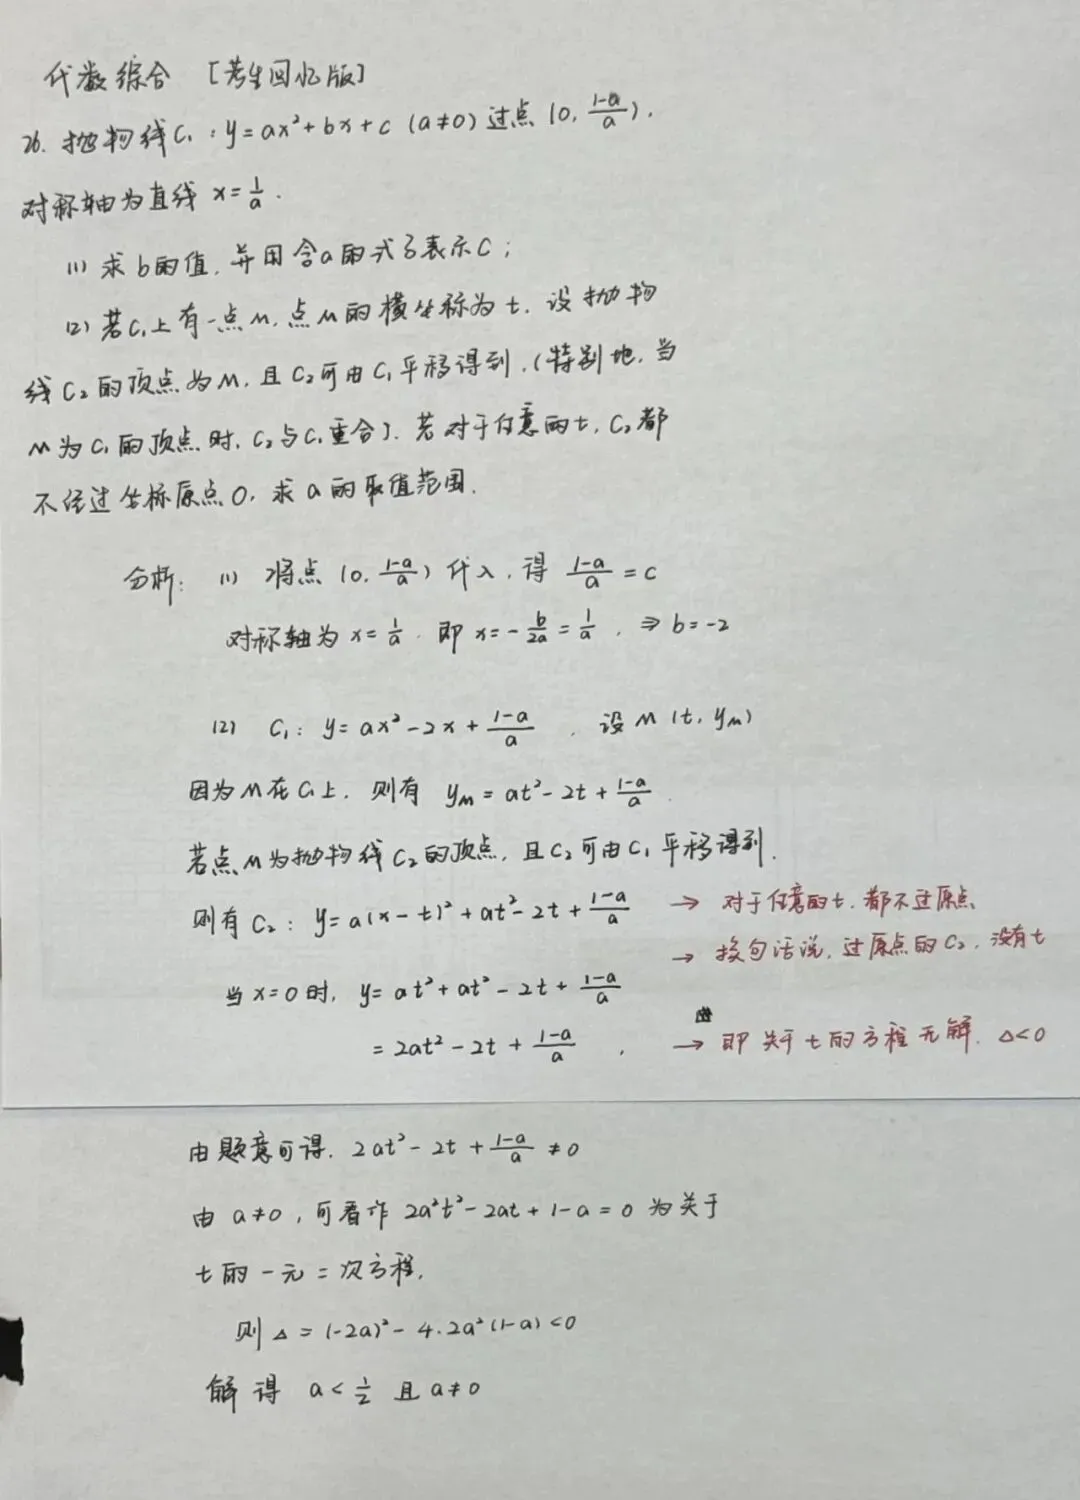 代数综合 [考生回忆版]
26. 抛物线C₁:y=ax²+bx+c (a≠0)过点(0,\frac{1-a}{a}),
对称轴为直线 x=\frac{1}{a}.
(1) 求b的值,并用含a的式子表示C;
(2) 若C₁上有一点M,点M的横坐标为t,设抛物
线C₂的顶点为M,且C₂可由C₁平移得到.(特别地,当
M为C₁的顶点时,C₂与C₁重合).若对于任意的t,C₂都
不经过坐标原点O,求a的取值范围.
分析: (1) 将点(0,\frac{1-a}{a})代入,得 \frac{1-a}{a}=c
对称轴为 x=\frac{1}{a}.即 x=-\frac{b}{2a}=\frac{1}{a}, ⇒ b=-2
(2) C₁: y=ax²-2x+\frac{1-a}{a} , 设M(t,y_M)
因为M在C₁上,则有 y_M=at²-2t+\frac{1-a}{a}.
若点M为抛物线C₂的顶点,且C₂可由C₁平移得到.
则有C₂: y=a(x-t)²+at²-2t+\frac{1-a}{a} → 对于任意的t.都不过原点
→ 换句话说,过原点的C₂,没有t
当x=0时, y=at²+at²-2t+\frac{1-a}{a}
=2at²-2t+\frac{1-a}{a} , → 即关于t的方程无解. Δ<0
由题意可得, 2at²-2t+\frac{1-a}{a}≠0
由 a≠0,可看作 2a²t²-2at+1-a=0 为关于
t的一元二次方程,
则 Δ=(-2a)²-4·2a²(1-a)<0
解得 a<\frac{1}{2} 且a≠0